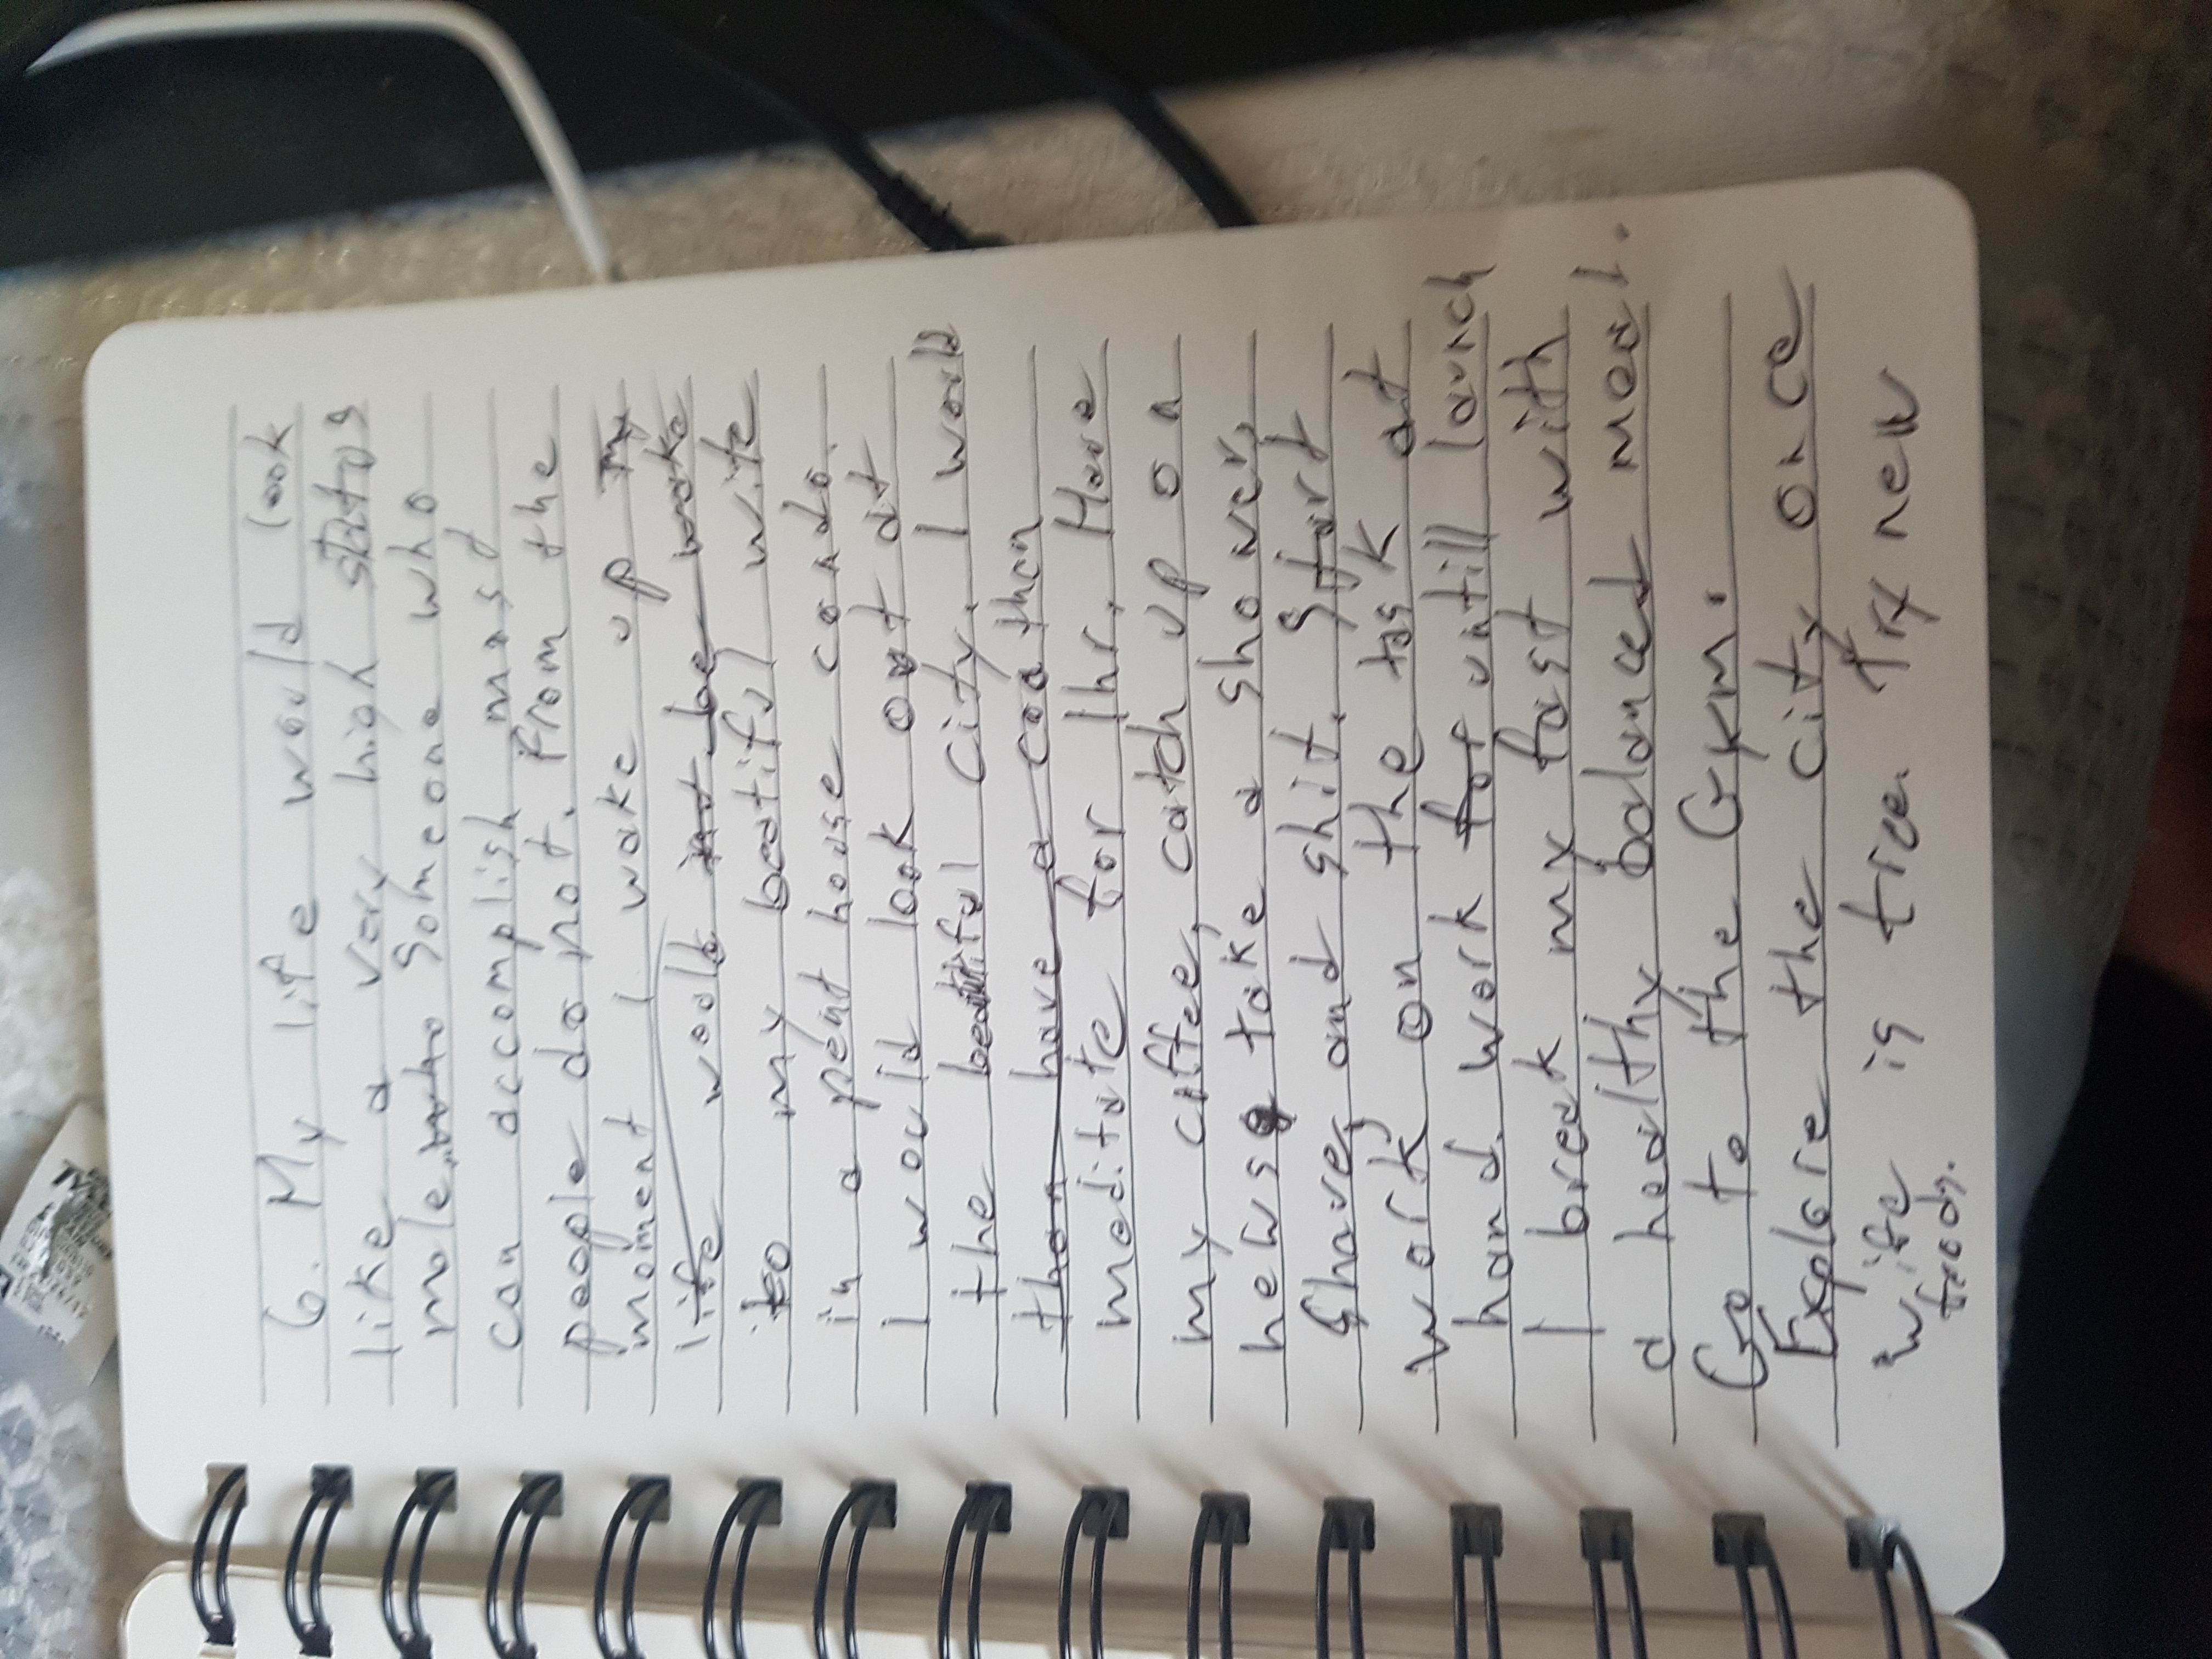 6. My life would look
like a very high status
male, who someone who
can accomplish most
people do not. From the
moment I wake up my
life would not be wake
to my beatiful wife
in a pent house condo.
I would look out at
the beautiful city. I would
then have a coa then
meditate for 1hr. Have
my coffee, catch up on
news, take a shower,
shave, and shit. Start
work on the task at
hand. Work for untill launch
I break my fast with
a healthy balanced meal.
Go to the Gym.
Explore the city once
wife is free. Try new
foods.